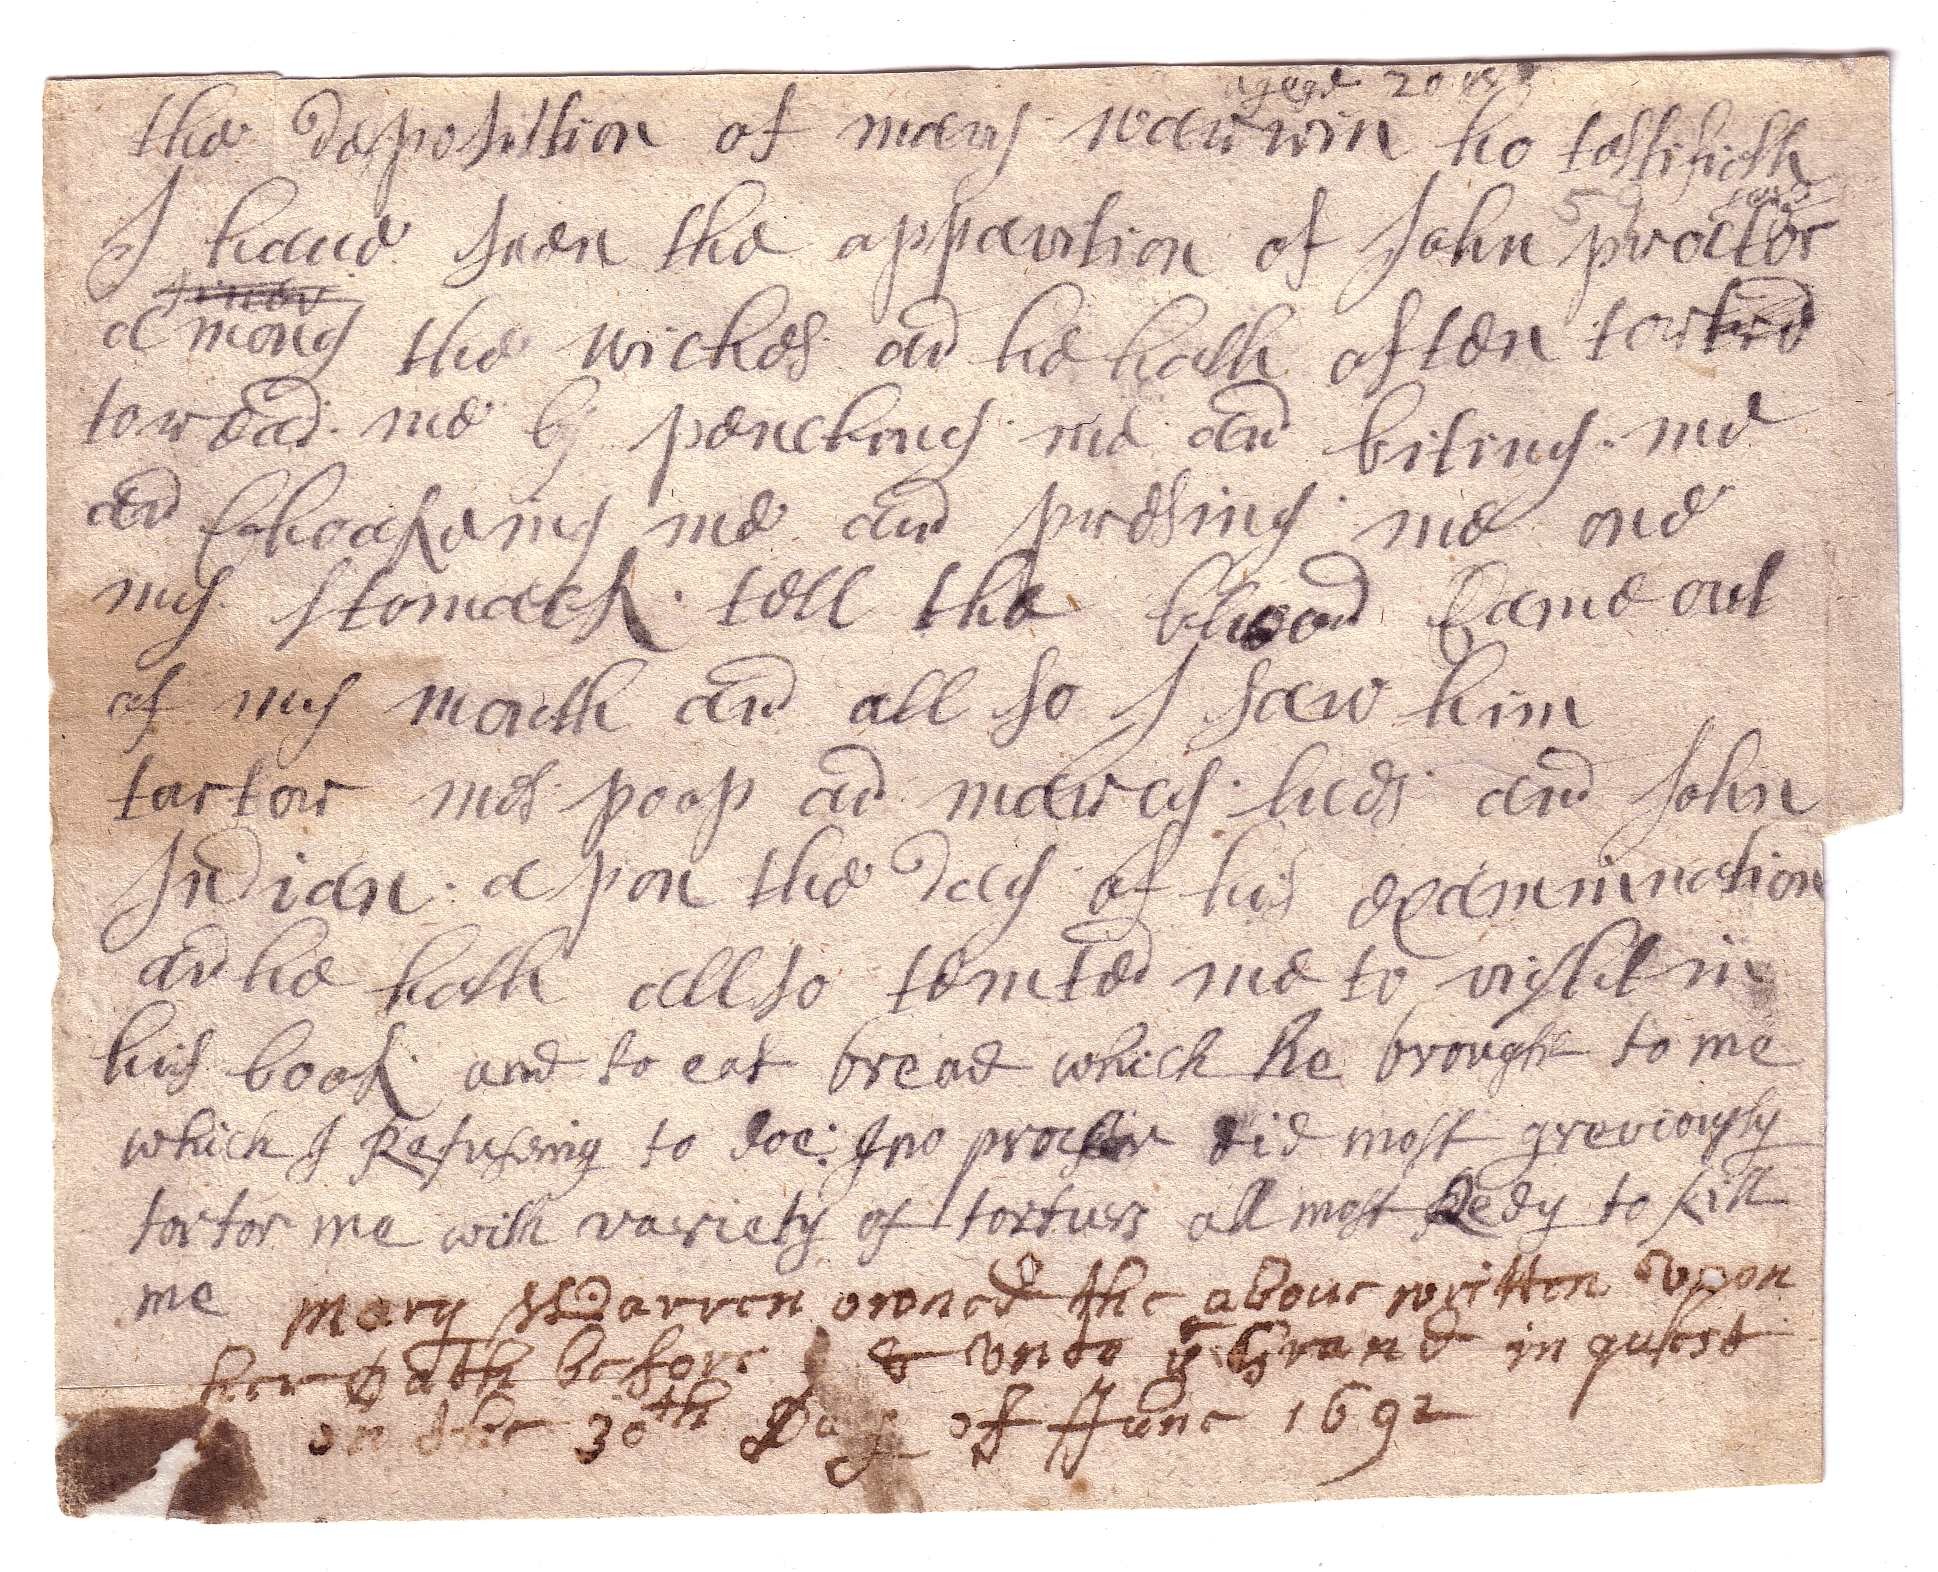 agege 20 y
the deposistion of mary warwin ho testifieth
I haue seen the appartion of John proctor senr
among the wiches and he hath often tortred
tortred me by penching me and biting me
and Choakeing me and presing me one
my stomack tell the blood Came out
of my mouth and all so I saw him
tortor mes poap and marcy lues and John
Indian a pon the day of his examination
and he hath allso temted me to right in
his book and to eat bread which he brought to me
which I Refuseing to doe: Jno proctor did most greviously
tortor me with variety of torturs all most Redy to kill
me Mary Warren owned the aboue written upon
her Oath before & unto ye Grand inquest
on the 30th Day of June 1692